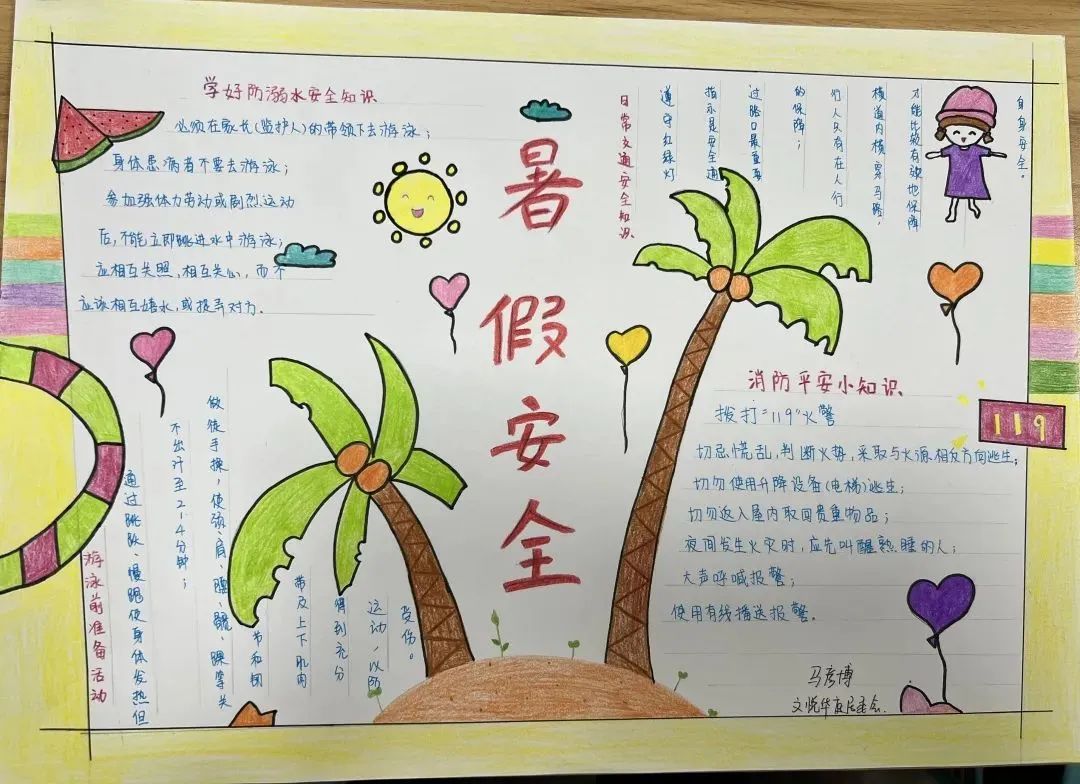 暑假安全
学好防溺水安全知识
必须在家长(监护人)的带领下去游泳；
身体患病者不要去游泳；
参加强体力劳动或剧烈运动
后，不能立即跳进水中游泳；
应相互关照，相互关心，而不
应该相互嬉水，或捉弄对方．
日常交通安全知识
遵守红绿灯
指示是安全通
过路口最重要
的保障；
行人只有在人行
横道内横穿马路，
才能比较有效地保障
自身安全。
游泳前准备活动
通过跳跃、慢跑使身体发热但
不出汗至2-4分钟；
做徒手操，使颈、肩、腰、髋、踝等关
节和周
带及上下肌肉
得到充分
运动，以防
受伤。
消防平安小知识
拨打“119”火警
切忌慌乱，判断火势，采取与火源相反方向逃生；
切勿使用升降设备(电梯)逃生；
切勿返入屋内取回贵重物品；
夜间发生火灾时，应先叫醒熟睡的人；
大声呼喊报警；
使用有线播送报警。
119
马彦博
文悦华庭居委会